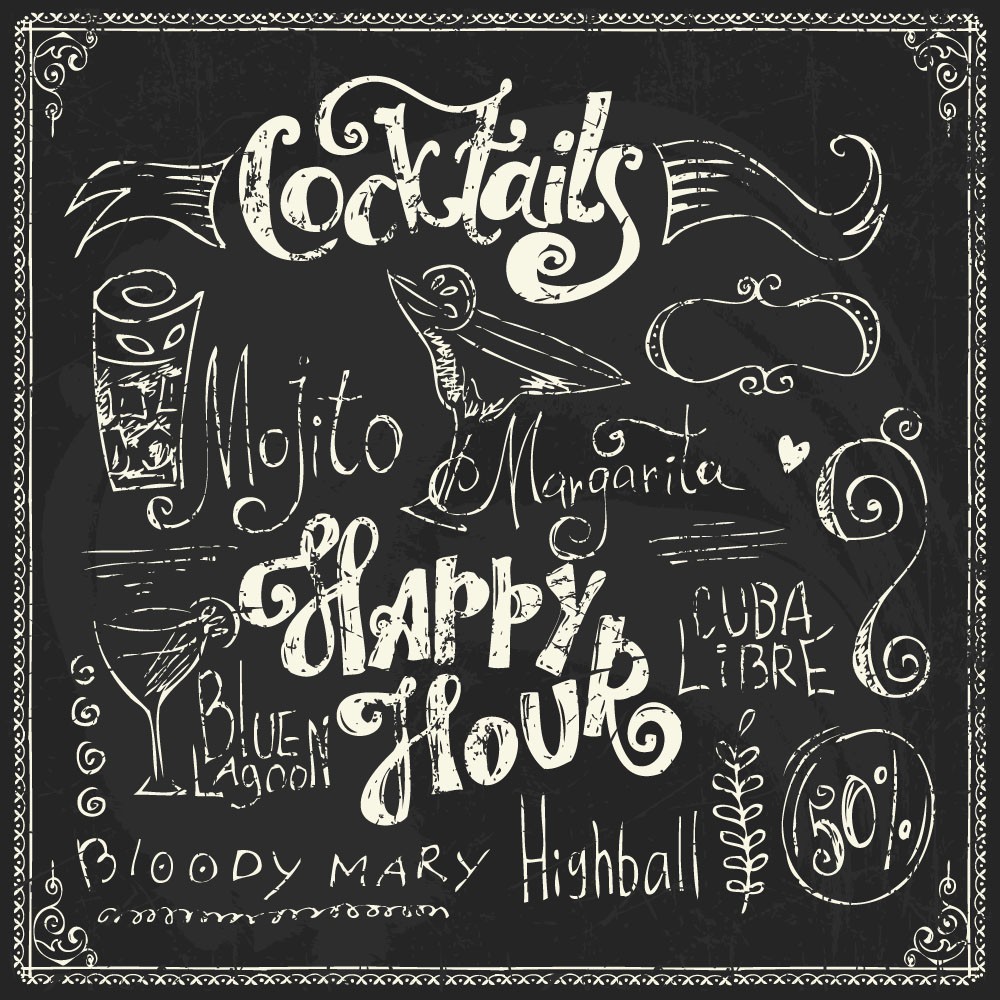 Cocktails
Mojito
Margarita
HAPPY
HOUR
CUBA
LiBRE
BLUEN
LAgooN
BlOODY MARY
Highball
50%